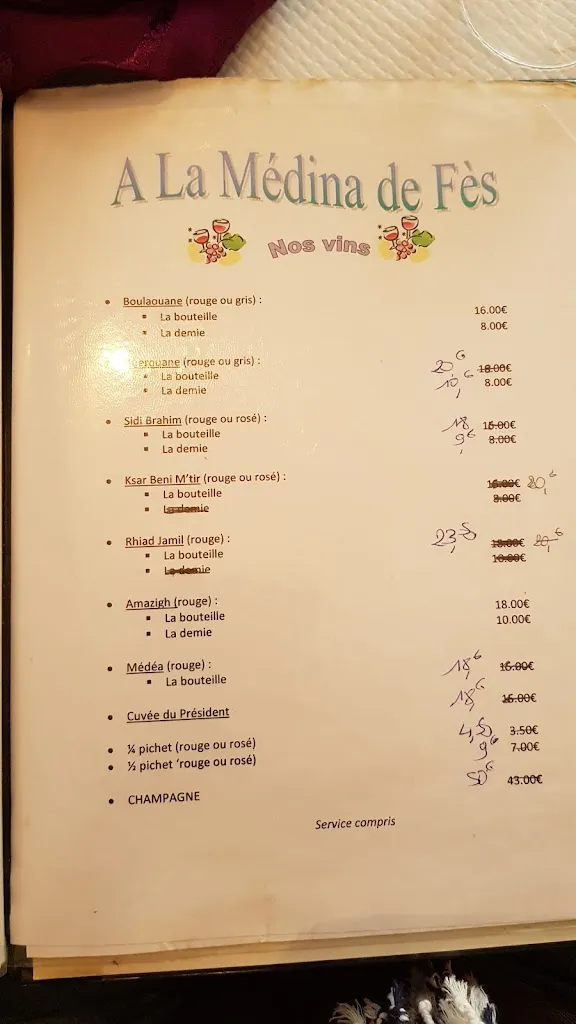 A La Médina de Fès
Nos vins
• Boulaouane (rouge ou gris) :
▪ La bouteille 16.00€
▪ La demie 8.00€
(rouge ou gris) :
▪ La bouteille 20,€ 18.00€
▪ La demie 10,€ 8.00€
• Sidi Brahim (rouge ou rosé) :
▪ La bouteille 18 15.00€
▪ La demie 9€ 8.00€
• Ksar Beni M'tir (rouge ou rosé) :
▪ La bouteille 20,€
▪ La demie 8.00€
• Rhiad Jamil (rouge) :
▪ La bouteille 23,5 18.00€ 20,€
▪ La demie 10.00€
• Amazigh (rouge) :
▪ La bouteille 18.00€
▪ La demie 10.00€
• Médéa (rouge) :
▪ La bouteille 18,€ 15.00€
• Cuvée du Président 18,€ 15.00€
• ¼ pichet (rouge ou rosé) 4,5 3.50€
• ½ pichet 'rouge ou rosé) 9€ 7.00€
• CHAMPAGNE 50€ 43.00€
Service compris